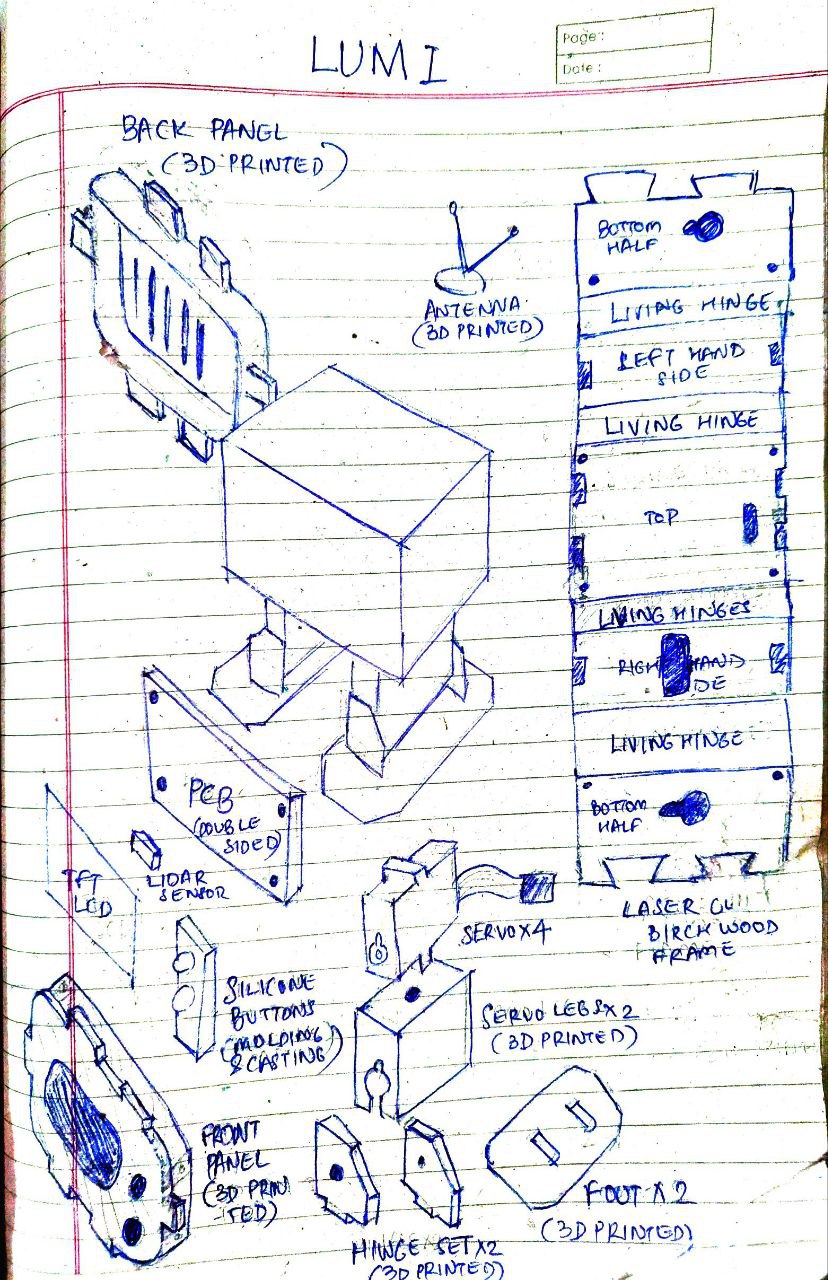 LUMI
Page:
Date:
BACK PANEL
(3D PRINTED)
ANTENNA
(3D PRINTED)
BOTTOM
HALF
LIVING HINGE
LEFT HAND
SIDE
LIVING HINGE
TOP
LIVING HINGES
RIGHT HAND
DE
LIVING HINGE
BOTTOM
HALF
LASER CU
BIRCH WOOD
FRAME
PCB
(DOUBLE
SIDED)
TFT
LCD
LIDAR
SENSOR
SERVO X 4
SILICONE
BUTTONS
(MOLDING
& CASTING)
SERVO LEGS X 2
(3D PRINTED)
FRONT
PANEL
(3D PRIN
-TED)
HINGE SET X2
(3D PRINTED)
FOOT X 2
(3D PRINTED)